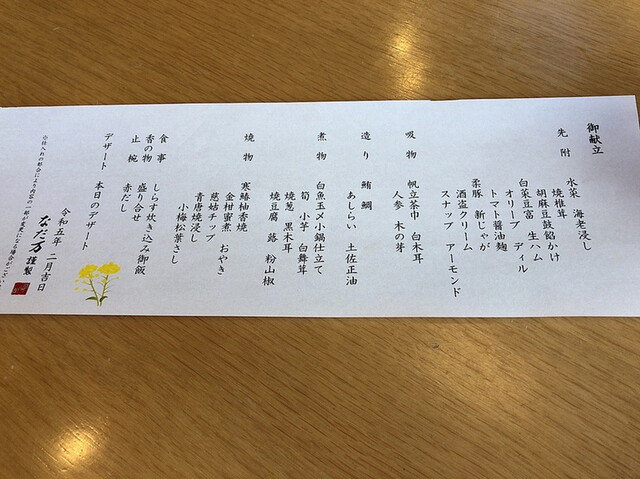 御献立
先附
水菜 海老浸し
焼椎茸
胡麻豆鼓餡かけ
白菜豆富 生ハム
オリーブ ディル
トマト醤油麹
柔豚 新じゃが
酒盗クリーム
スナップ アーモンド
吸物
帆立茶巾 白木耳
人参 木の芽
造り
鮪 鯛
あしらい 土佐正油
煮物
白魚玉〆小鍋仕立て
筍 小芋 白舞茸
焼葱 黒木耳
焼豆腐 蕗 粉山椒
焼物
寒鰆柚香焼
金柑蜜煮 おやき
慈姑チップ
青唐焼浸し
小梅松葉さし
食事
しらす炊き込み御飯
香の物
盛り合せ
止椀
赤だし
デザート
本日のデザート
令和五年 二月吉日
なだ万 謹製
仕入れの都合により内容の一部が変更になる場合がござい